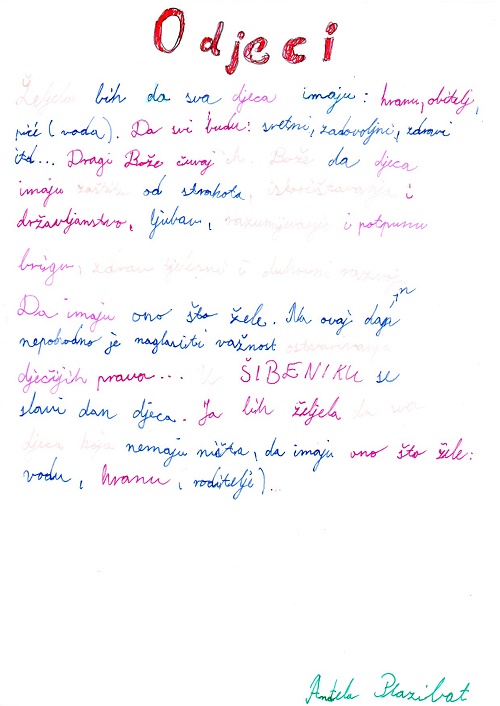 O djeci
Željela bih da sva djeca imaju: hranu, obitelj,
piće (voda). Da svi budu: sretni, zadovoljni, zdravi
itd... Dragi Bože čuvaj ih. Bože da djeca
imaju zaštitu od strahota, iskorištavanja i
državljanstvo, ljubav, razumijevanje i potpunu
brigu, zdrav tjelesni i duhovni razvoj.
Da imaju ono što žele. Na ovaj dan
nepohodno je naglasiti važnost ostvarivanja
dječijih prava... U ŠIBENIKU se
slavi dan djeca. Ja bih željela da sva
djeca koja nemaju ništa, da imaju ono što žele:
vodu, hranu, (roditelji)...
Anđela Plazibat